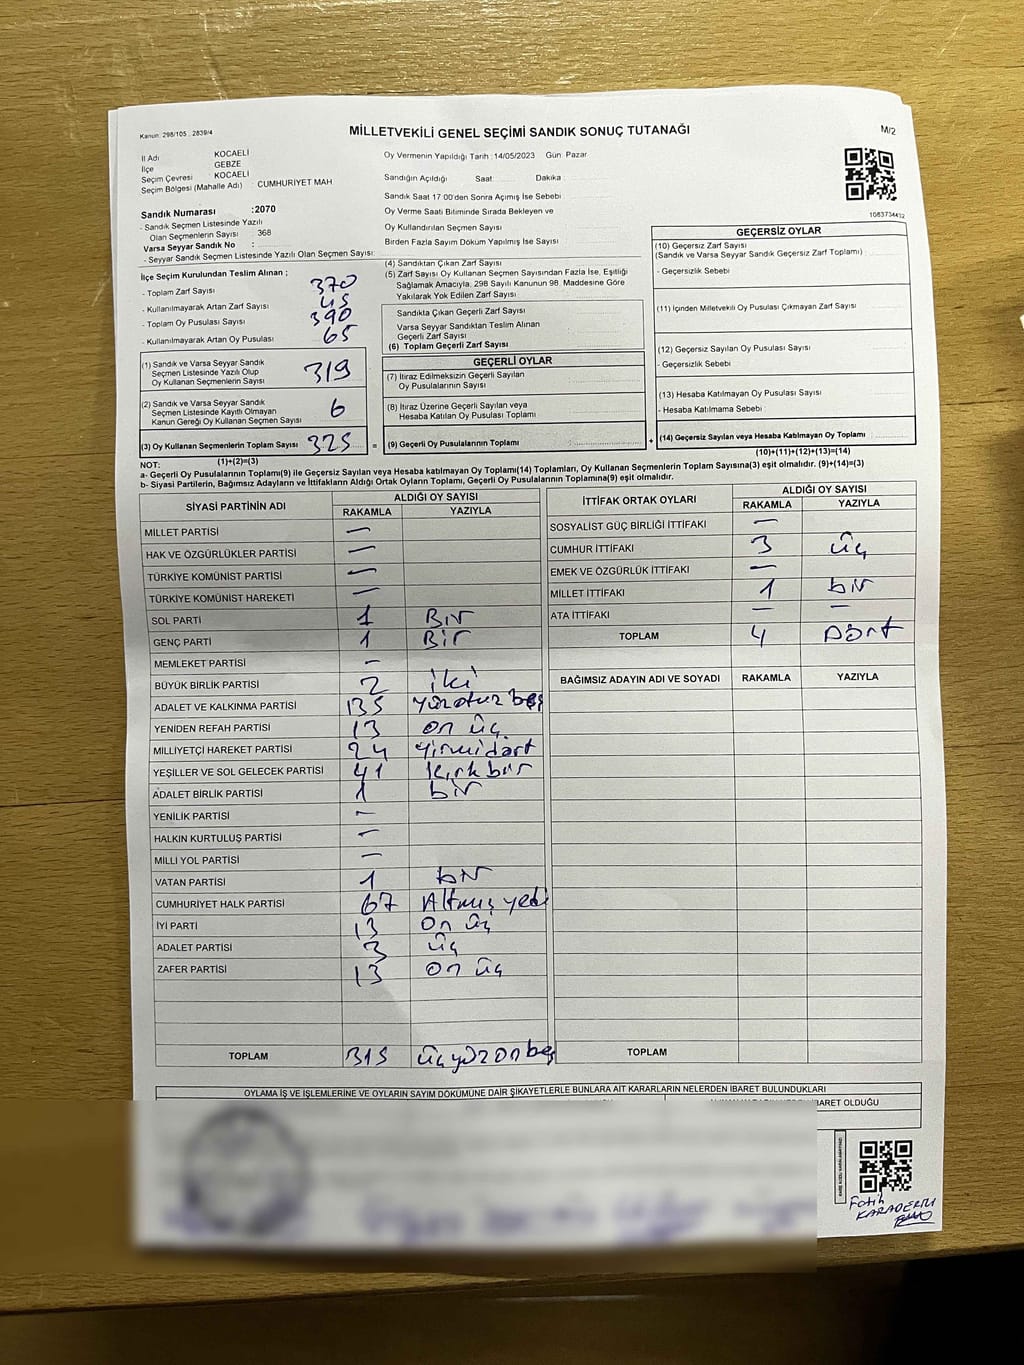 Kanun: 298/105 , 2839/4
MİLLETVEKİLİ GENEL SEÇİMİ SANDIK SONUÇ TUTANAĞI
M/2
İl Adı KOCAELİ
İlçe GEBZE
Seçim Çevresi KOCAELİ
Seçim Bölgesi (Mahalle Adı) : CUMHURİYET MAH
Sandık Numarası :2070
- Sandık Seçmen Listesinde Yazılı
Olan Seçmenlerin Sayısı : 368
Varsa Seyyar Sandık No :
- Seyyar Sandık Seçmen Listesinde Yazılı Olan Seçmen Sayısı:
Oy Vermenin Yapıldığı Tarih :14/05/2023 Gün: Pazar
Sandığın Açıldığı Saat: Dakika :
Sandık Saat 17:00'den Sonra Açımış İse Sebebi
Oy Verme Saati Bitiminde Sırada Bekleyen ve
Oy Kullandırılan Seçmen Sayısı
Birden Fazla Sayım Döküm Yapılmış İse Sayısı
1083734412
İlçe Seçim Kurulundan Teslim Alınan ;
- Toplam Zarf Sayısı 370
- Kullanılmayarak Artan Zarf Sayısı 45
- Toplam Oy Pusulası Sayısı 390
- Kullanılmayarak Artan Oy Pusulası 65
(1) Sandık ve Varsa Seyyar Sandık
Seçmen Listesinde Yazılı Olup
Oy Kullanan Seçmenlerin Sayısı 319
(2) Sandık ve Varsa Seyyar Sandık
Seçmen Listesinde Kayıtlı Olmayan
Kanun Gereği Oy Kullanan Seçmen Sayısı 6
(3) Oy Kullanan Seçmenlerin Toplam Sayısı 325 =
(1)+(2)=(3)
(4) Sandıktan Çıkan Zarf Sayısı
(5) Zarf Sayısı Oy Kullanan Seçmen Sayısından Fazla İse, Eşitliği
Sağlamak Amacıyla, 298 Sayılı Kanunun 98. Maddesine Göre
Yakılarak Yok Edilen Zarf Sayısı
Sandıkla Çıkan Geçerli Zarf Sayısı
Varsa Seyyar Sandıktan Teslim Alınan
Geçerli Zarf Sayısı
(6) Toplam Geçerli Zarf Sayısı
GEÇERLİ OYLAR
(7) İtiraz Edilmeksizin Geçerli Sayılan
Oy Pusulalarının Sayısı
(8) İtiraz Üzerine Geçerli Sayılan veya
Hesaba Katılan Oy Pusulası Toplamı
(9) Geçerli Oy Pusulalarının Toplamı : +
GEÇERSİZ OYLAR
(10) Geçersiz Zarf Sayısı
(Sandık ve Varsa Seyyar Sandık Geçersiz Zarf Toplamı)
- Geçersizlik Sebebi :
(11) İçinden Milletvekili Oy Pusulası Çıkmayan Zarf Sayısı
(12) Geçersiz Sayılan Oy Pusulası Sayısı
- Geçersizlik Sebebi :
(13) Hesaba Katılmayan Oy Pusulası Sayısı
- Hesaba Katılmama Sebebi :
(14) Geçersiz Sayılan veya Hesaba Katılmayan Oy Toplamı
(10)+(11)+(12)+(13)=(14)
NOT:
a- Geçerli Oy Pusulalarının Toplamı(9) ile Geçersiz Sayılan veya Hesaba katılmayan Oy Toplamı(14) Toplamları, Oy Kullanan Seçmenlerin Toplam Sayısına(3) eşit olmalıdır. (9)+(14)=(3)
b- Siyasi Partilerin, Bağımsız Adayların ve İttifakların Aldığı Ortak Oyların Toplamı, Geçerli Oy Pusulalarının Toplamına(9) eşit olmalıdır.
SİYASİ PARTİNİN ADI ALDIĞI OY SAYISI
RAKAMLA YAZIYLA
MİLLET PARTİSİ —
HAK VE ÖZGÜRLÜKLER PARTİSİ —
TÜRKİYE KOMÜNİST PARTİSİ —
TÜRKİYE KOMÜNİST HAREKETİ —
SOL PARTİ 1 Bir
GENÇ PARTİ 1 Bir
MEMLEKET PARTİSİ —
BÜYÜK BİRLİK PARTİSİ 2 iki
ADALET VE KALKINMA PARTİSİ 135 yüzotuz beş
YENİDEN REFAH PARTİSİ 13 on üç
MİLLİYETÇİ HAREKET PARTİSİ 24 yirmidört
YEŞİLLER VE SOL GELECEK PARTİSİ 41 kırk bir
ADALET BİRLİK PARTİSİ 1 bir
YENİLİK PARTİSİ —
HALKIN KURTULUŞ PARTİSİ —
MİLLİ YOL PARTİSİ —
VATAN PARTİSİ 1 bir
CUMHURİYET HALK PARTİSİ 67 Altmış yedi
İYİ PARTİ 13 On üç
ADALET PARTİSİ 3 üç
ZAFER PARTİSİ 13 on üç
TOPLAM 315 üçyüz on beş
İTTİFAK ORTAK OYLARI ALDIĞI OY SAYISI
RAKAMLA YAZIYLA
SOSYALİST GÜÇ BİRLİĞİ İTTİFAKI —
CUMHUR İTTİFAKI 3 üç
EMEK VE ÖZGÜRLÜK İTTİFAKI —
MİLLET İTTİFAKI 1 bir
ATA İTTİFAKI — —
TOPLAM 4 Dört
BAĞIMSIZ ADAYIN ADI VE SOYADI RAKAMLA YAZIYLA
TOPLAM
OYLAMA İŞ VE İŞLEMLERİNE VE OYLARIN SAYIM DÖKÜMÜNE DAİR ŞİKAYETLERLE BUNLARA AİT KARARLARIN NELERDEN İBARET BULUNDUKLARI
İBARET OLDUĞU
Fatih
KARADERELİ